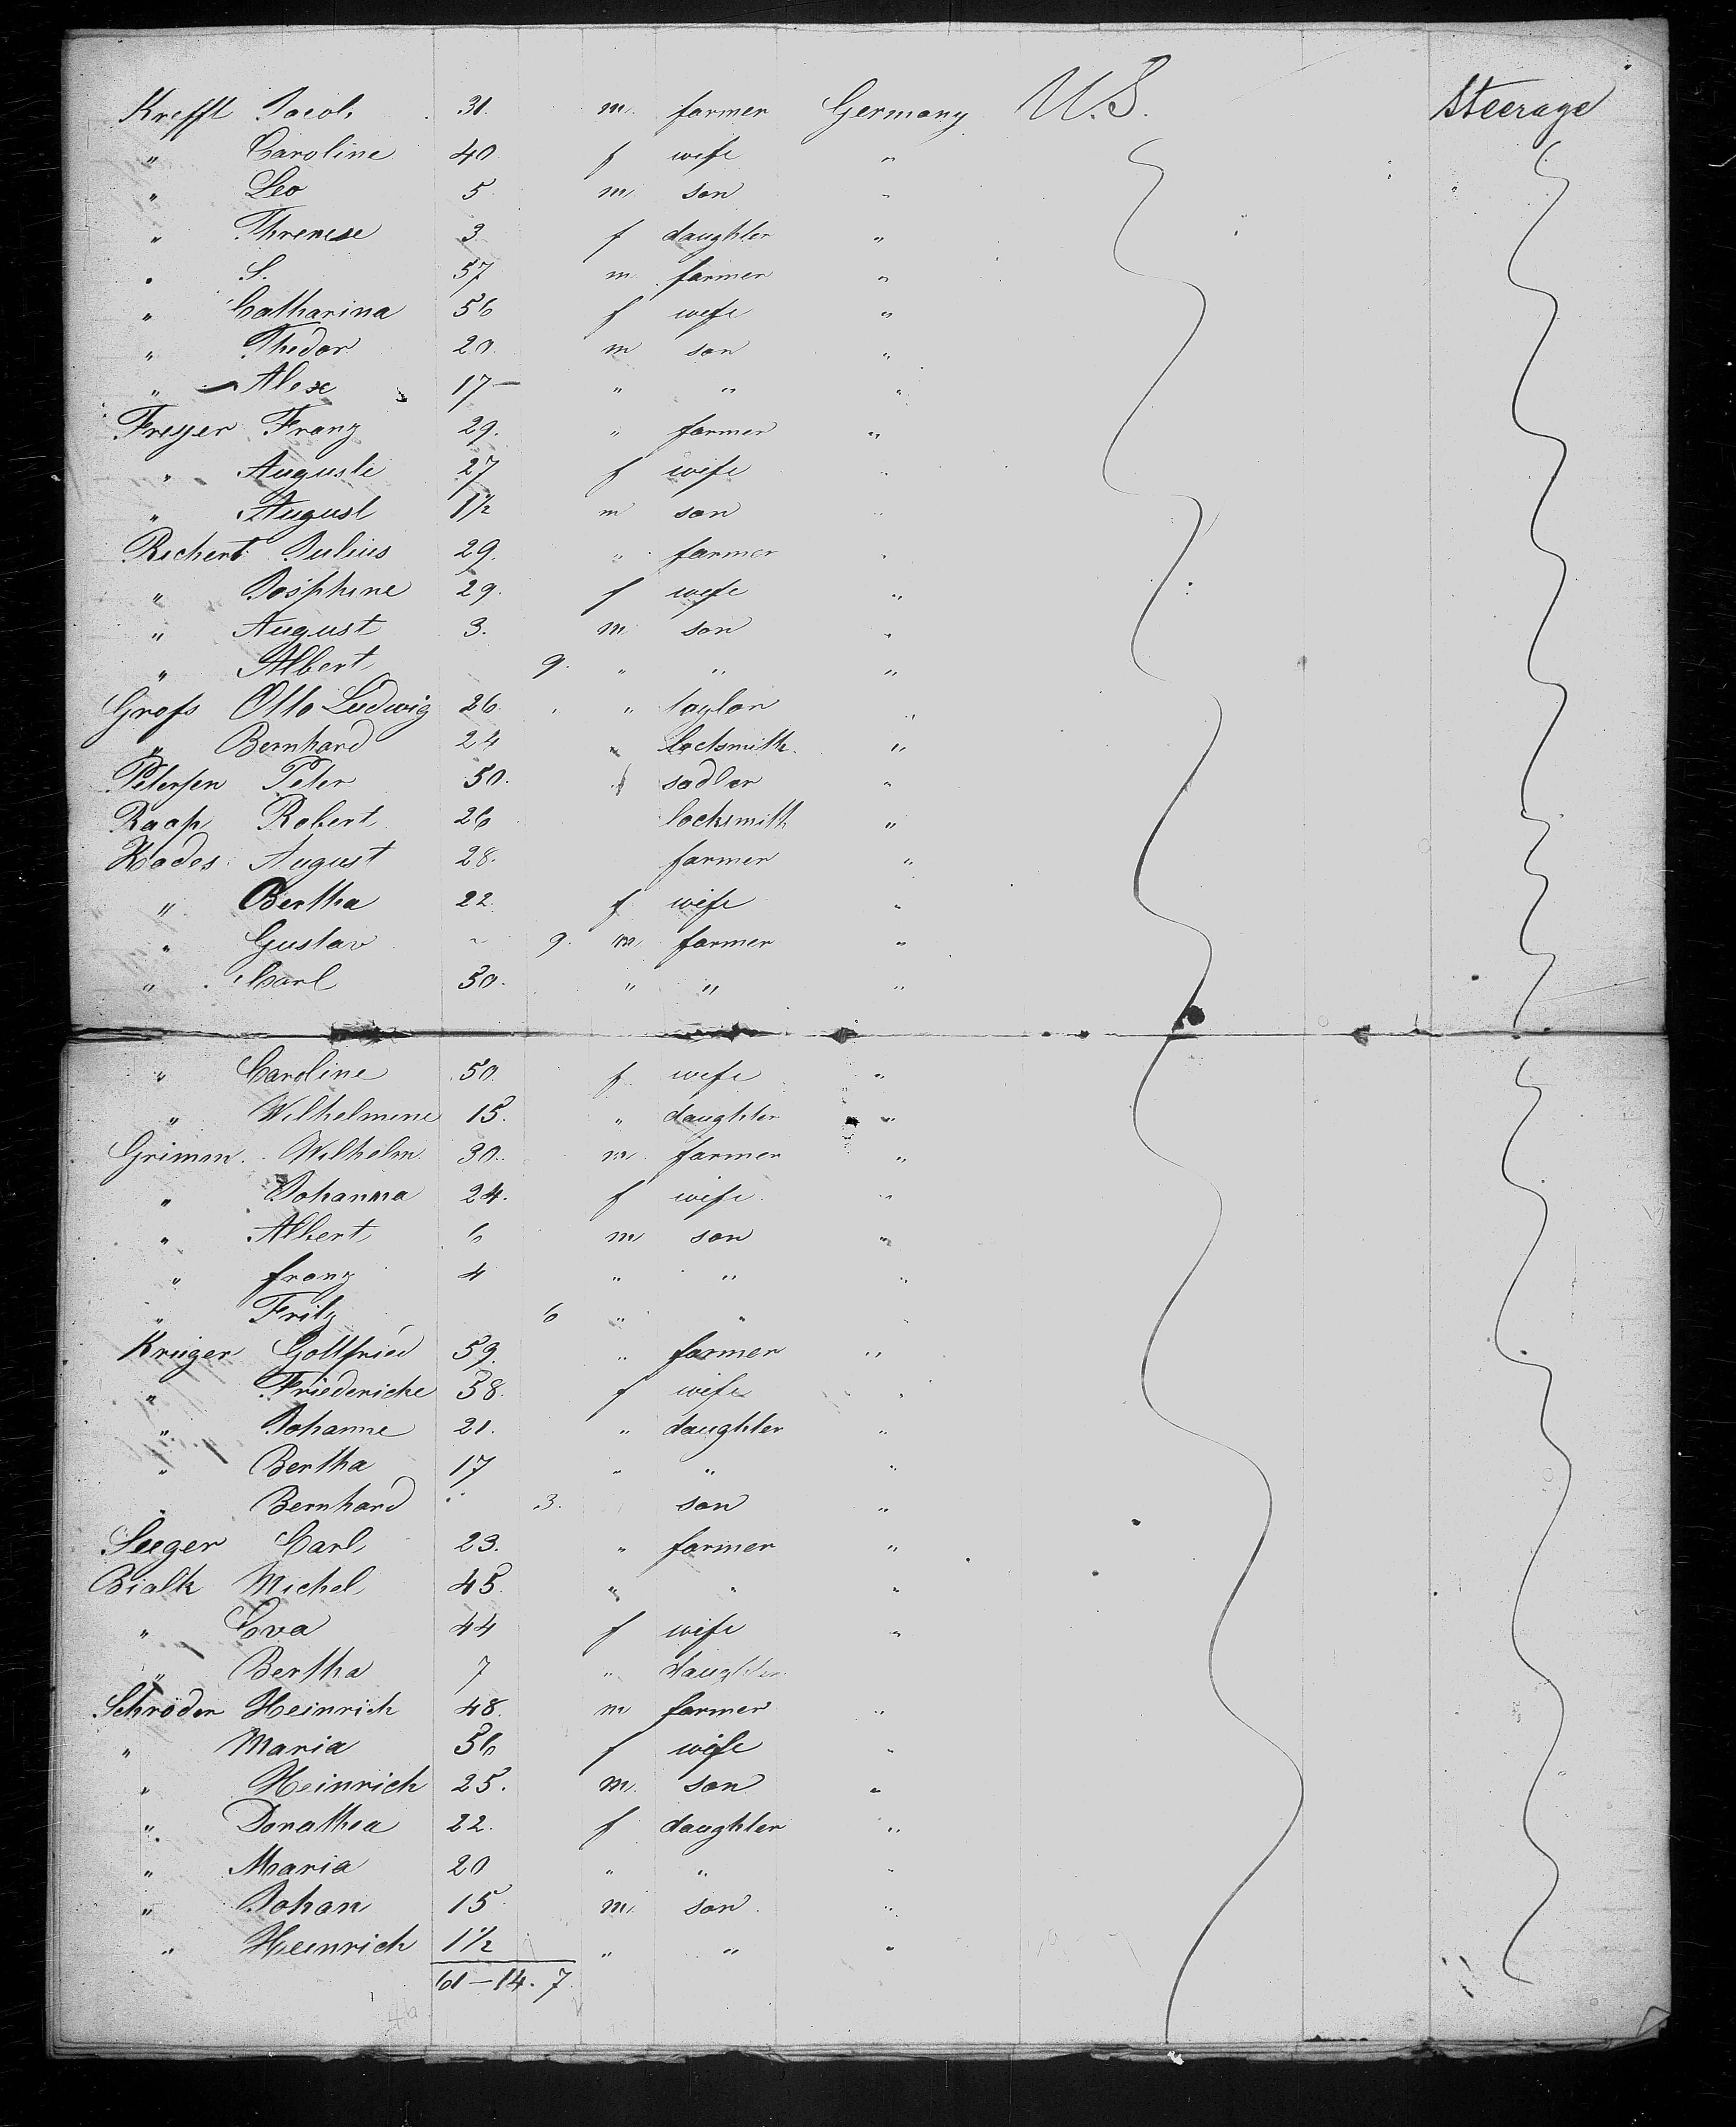 Krefft Jacob 31. m. farmer Germany U.S. Steerage
" Caroline 40 f wife "
" Leo 5 m son "
" Threnese 3 f daughter "
" S. 57 m farmer "
" Catharina 56 f wife "
" Thedor 20. m son "
" Alex 17 " " "
Freyer Franz 29. " farmer "
" Auguste 27 f wife "
" August 1½ m son "
Richert Julius 29. " farmer "
" Josephine 29. f wife "
" August 3. m son "
" Albert 9. " " "
Grofs Otto Ludwig 26. " taylor "
" Bernhard 24 " locksmith "
Petersen Peter 50. sadler "
Raap Robert 26 locksmith "
Kades August 28. farmer "
" Bertha 22 f wife "
" Gustav - 9. m farmer "
" Carl 50. " " "
" Caroline 50 f wife "
" Wilhelmine 15. " daughter "
Grimm Wilhelm 30. m farmer "
" Johanna 24. f wife "
" Albert 6 m son "
" franz 4 " " "
" Fritz 6 " " "
Krüger Gottfried 59. " farmer "
" Friedericke 58. f wife "
" Johanne 21. " daughter "
" Bertha 17 " " "
" Bernhard 3. son "
Seeger Carl 23. " farmer "
Bialk Michel 45. " " "
" Eva 44 f wife "
" Bertha 7 " daughter
Schröder Heinrich 48. m farmer "
" Maria 56 f wife "
" Heinrich 25. m son "
" Dorathea 22. f daughter "
" Maria 20 " " "
" Johan 15 m son "
" Heinrich 1½ " " "
61 — 14. 7